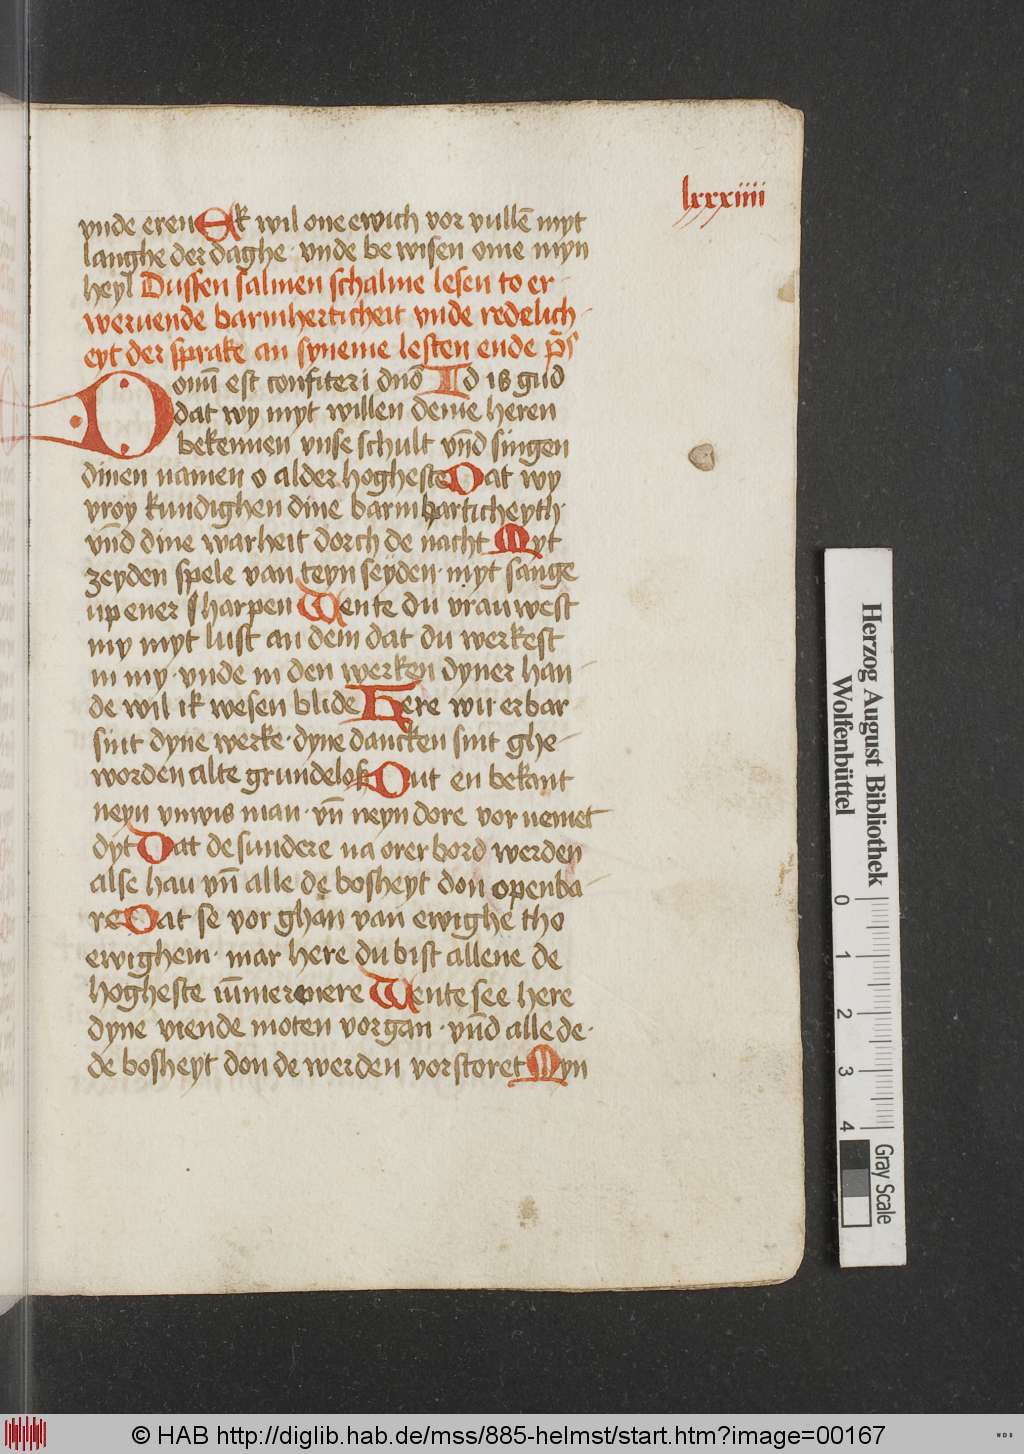 lxxxiiii
vnde eren Ek wil one ewich vor vullē myt
langhe der daghe · vnde be wisen ome myn
heyl Dussen salmen schalme lesen to er-
weruende barmherticheit vnde redelich-
eyt der sprake an syneme lesten ende p̄s
Bonū est confiteri dnō Id is gud
dat wy myt willen deme heren
bekennen vnse schult vn̄d singen
dinen namen o alder hogheste Dat wy
vroy kundighen dine barmharticheyth·
vn̄d dine warheit dorch de nacht Myt
zeyden spele van teyn seyden · myt sange
up ener sharpen Wente du vrauwest
my myt lust an dem dat du werkest
in my · vnde in den werken dyner han-
de wil ik wesen blide Here wu erbar
sint dyne werke · dyne dancken sint ghe-
worden alte grundelos Dut en bekant
neyn vnwis man · vn̄ neyn dore vor nemet
dyt Dat de sundere na orer bord werden
alse hau vn̄ alle de bosheyt don openba-
re Dat se vor ghan van ewighe tho
ewighem · mar here du bist allene de
hogheste iūmermere Wente see here
dyne viende moten vorgan · vn̄d alle de·
de bosheyt don de werden vorstoret Myn
Herzog August Bibliothek
Wolfenbüttel
0 1 2 3 4
Gray Scale
© HAB http://diglib.hab.de/mss/885-helmst/start.htm?image=00167